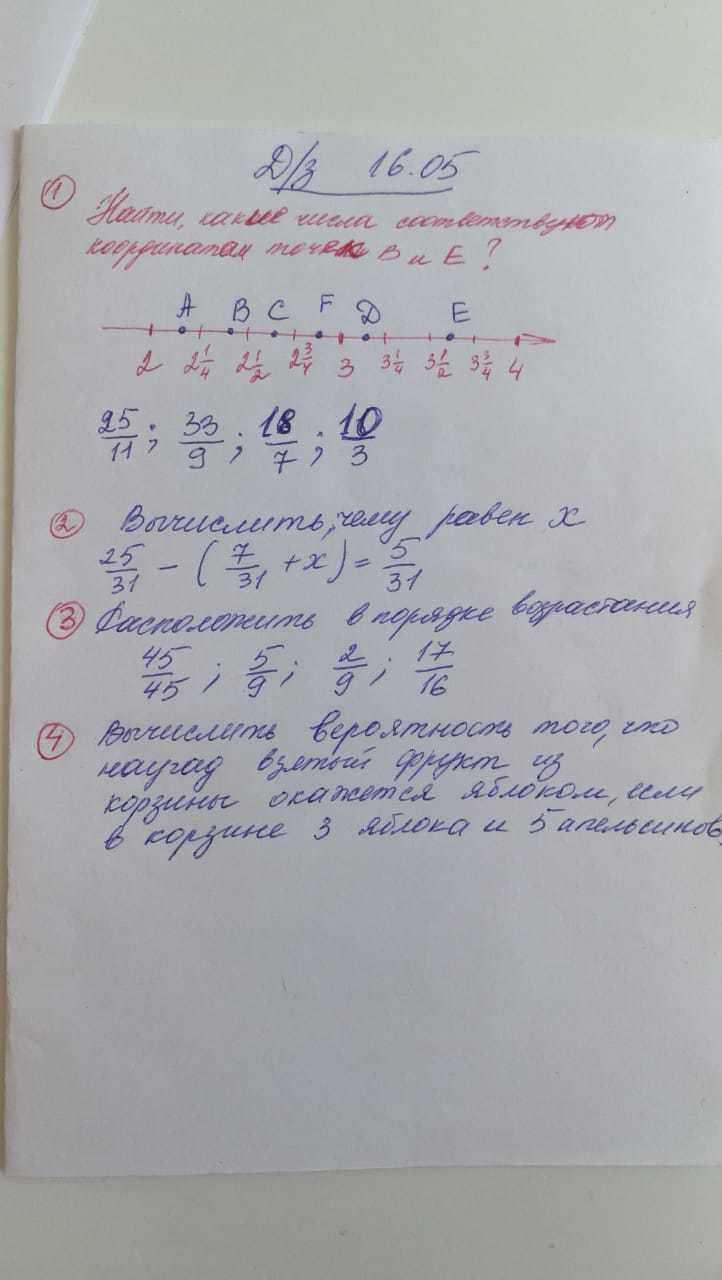 Д/з 16.05
① Найти, какие числа соответствуют
координатам точек B и E?
A B C F D E
2 2 1/4 2 1/2 2 3/4 3 3 1/4 3 1/2 3 3/4 4
25/11; 33/9; 18/7; 10/3
② Вычислить, чему равен x
25/31 - (7/31 + x) = 5/31
③ Расположить в порядке возрастания
45/45; 5/9; 2/9; 17/16
④ Вычислить вероятность того, что
наугад взятый фрукт из
корзины окажется яблоком, если
в корзине 3 яблока и 5 апельсинов.